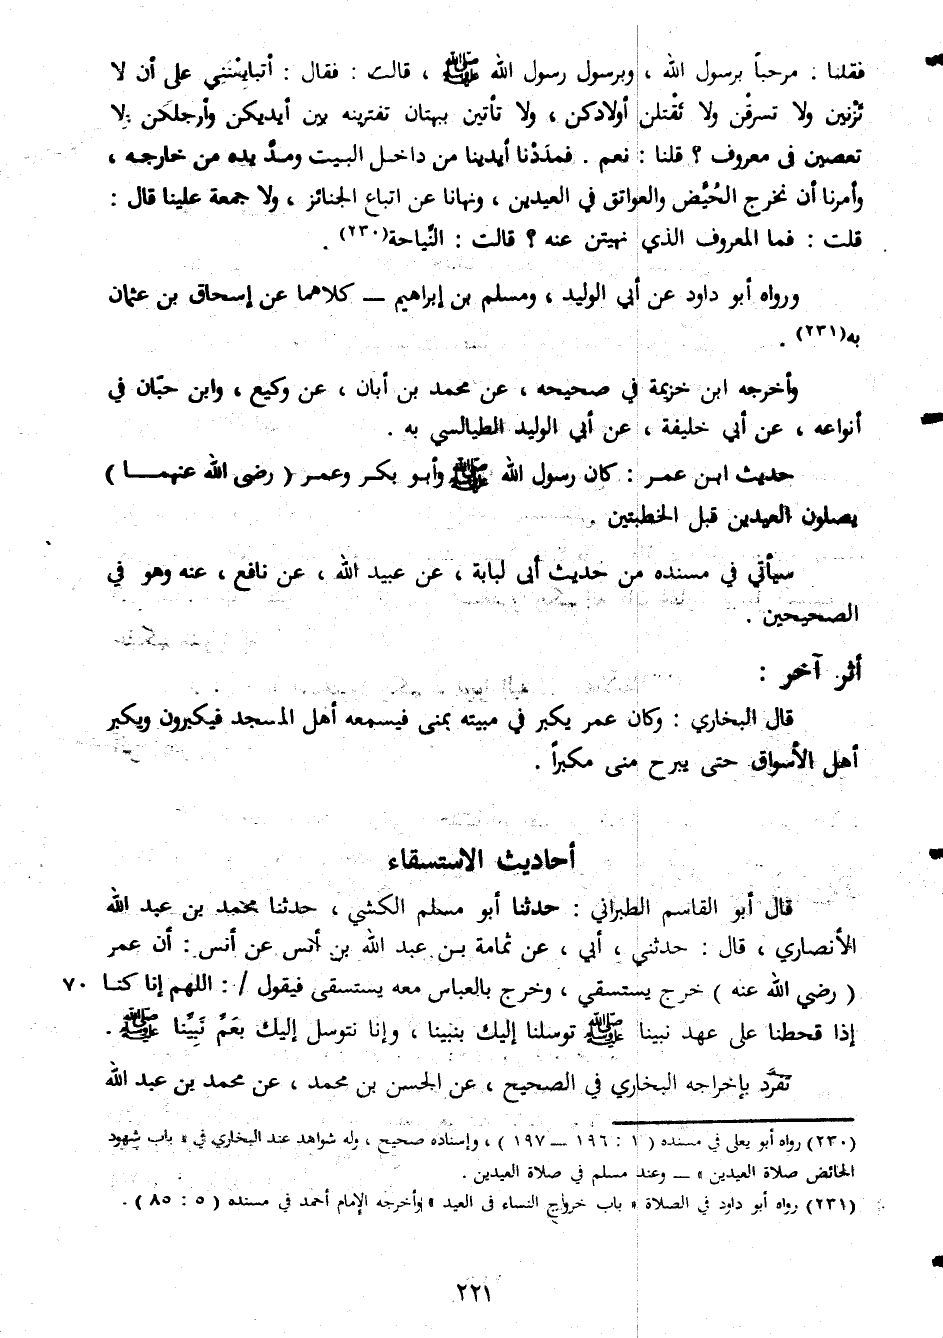 فقلنا : مرحباً برسول الله ، وبرسول رسول الله ﷺ ، قالت : فقال : أتبايعْنَنِي على أن لا
تَزْنين ولا تسرقْن ولا تَقْتلن أولادكن ، ولا تأتين ببهتان تفترينه بين أيديكن وأرجلكن ولا
تعصين فى معروف ؟ قلنا : نعم . فمدَدْنا أيدينا من داخل البيت ومدَّ يده من خارجه ،
وأمرنا أن نخرج الحُيَّض والعواتق في العيدين ، ونهانا عن اتباع الجنائز ، ولا جمعة علينا قال :
قلت : فما المعروف الذي نهيتن عنه ؟ قالت : النِّياحة(٢٣٠) .
ورواه أبو داود عن أبي الوليد ، ومسلم بن إبراهيم ــ كلاهما عن إسحاق بن عثمان
به(٢٣١) .
وأخرجه ابن خزيمة في صحيحه ، عن محمد بن أبان ، عن وكيع ، وابن حبّان في
أنواعه ، عن أبي خليفة ، عن أبي الوليد الطيالسي به .
حديث ابـن عمـر : كان رسول الله ﷺ وأبـو بكـر وعمـر ( رضى الله عنهمـا )
يصلون العيدين قبل الخطبتين .
سيأتي في مسنده من حديث أبى لبابة ، عن عبيد الله ، عن نافع ، عنه وهو في
الصحيحين .
أثر آخر :
قال البخاري : وكان عمر يكبر في مبيته بمنى فيسمعه أهل المسجد فيكبرون ويكبر
أهل الأسواق حتى يبرح منى مكبراً .
أحاديث الاستسقاء
قال أبو القاسم الطبراني : حدثنا أبو مسلم الكشي ، حدثنا محمد بن عبد الله
الأنصاري ، قال : حدثني ، أبي ، عن ثمامة بـن عبد الله بن أنس عن أنس : أن عمر
( رضي الله عنه ) خرج يستسقي ، وخرج بالعباس معه يستسقى فيقول / : اللهم إنا كنـا ٧٠
إذا قحطنا على عهد نبينا ﷺ توسلنا إليك بنبينا ، وإنا نتوسل إليك بعَمِّ نَبِيِّنا ﷺ .
تفرَّد بإخراجه البخاري في الصحيح ، عن الحسن بن محمد ، عن محمد بن عبد الله
(٢٣٠) رواه أبو يعلى في مسنده ( ١ : ١٩٦ ــ ١٩٧ ) ، وإسناده صحيح ، وله شواهد عند البخاري في « باب شهود
الحائض صلاة العيدين » ــ وعند مسلم في صلاة العيدين .
(٢٣١) رواه أبو داود في الصلاة « باب خرواج النساء فى العيد » وأخرجه الإمام أحمد في مسنده ( ٥ : ٨٥ ) .
٢٢١